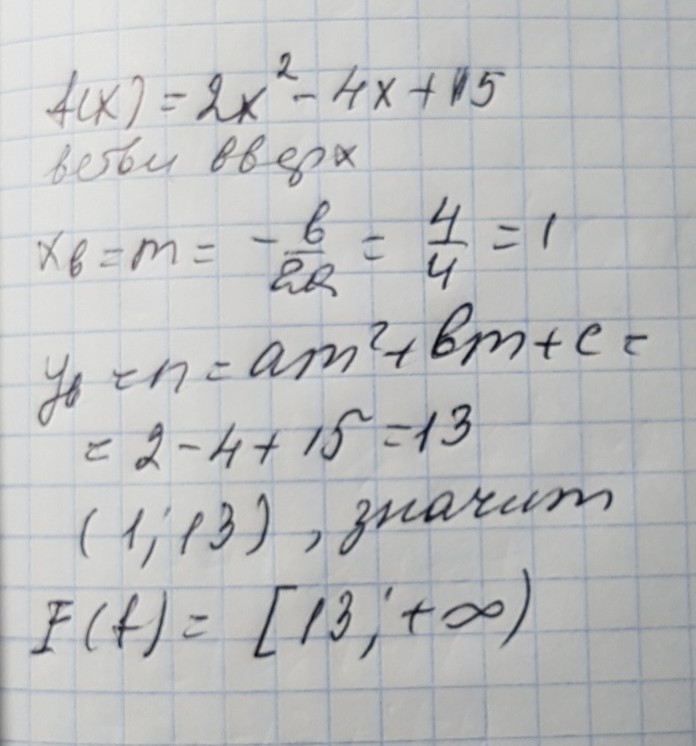 f(x) = 2x² - 4x + 15
ветви вверх
xв = m = -в/2а = 4/4 = 1
yв = n = am² + вm + c =
= 2 - 4 + 15 = 13
(1; 13), значит
E(f) = [13; +∞)